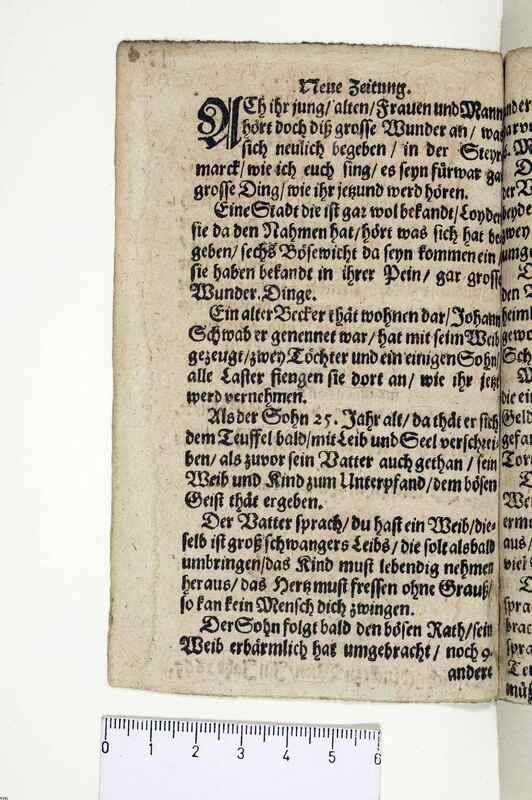 Neue Zeitung.
ACh ihr jung/ alten/ Frauen und Mann
hört doch diß grosse Wunder an/ was
sich neulich begeben / in der Steyr
marck/ wie ich euch sing/ es seyn fürwar gar
grosse Ding/ wie ihr jetzund werd hören.
Eine Stadt die ist gar wol bekandt/ Loyden
sie da den Nahmen hat/ hört was sich hat be
geben/ sechs Bösewicht da seyn kommen ein /
sie haben bekandt in ihrer Pein/ gar grosse
Wunder. Dinge.
Ein alter Becker thät wohnen dar/ Johann
Schwab er genennet war/ hat mit seim Weib
gezeugt/ zwey Töchter und ein einigen Sohn/
alle Laster fiengen sie dort an/ wie ihr jetzt
werd vernehmen.
Als der Sohn 25. Jahr alt/ da thät er sich
dem Teuffel bald/ mit Leib und Seel verschrei-
ben/ als zuvor sein Vatter auch gethan / sein
Weib und Kind zum Unterpfand/ dem bösen
Geist thät ergeben.
Der Vatter sprach/ du hast ein Weib/ die-
selb ist groß schwangers Leibs/ die solt alsbald
umbringen/ das Kind must lebendig nehmen
heraus/ das Hertz must fressen ohne Grauß/
so kan kein Mensch dich zwingen.
Der Sohn folgt bald den bösen Rath/ sein
Weib erbärmlich hat umgebracht/ noch 9.
andere
0 1 2 3 4 5 6